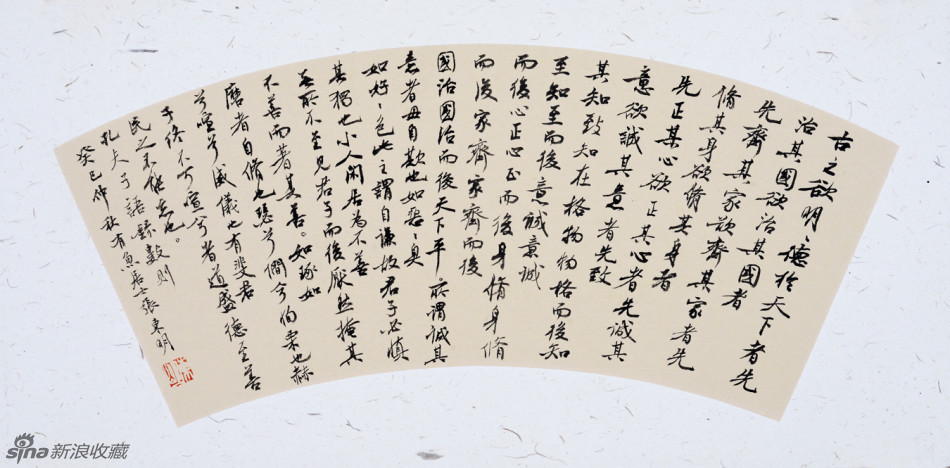 古之欲明德於天下者先
治其國欲治其國者
先齊其家欲齊其家者先
脩其身欲脩其身者
先正其心欲正其心者先誠其
意欲誠其意者先致
其知致知在格物物格而後知
至知至而後意誠意誠
而後心正心正而後身脩身脩
而後家齊家齊而後
國治國治而後天下平所謂誠其
意者毋自欺也如惡惡臭
如好〻色此之謂自謙故君子必慎
其獨也小人閑居為不善
無所不至見君子而後厭然掩其
不善而著其善。如琢如
磨者自脩也瑟兮僩兮恂栗也赫
兮喧兮威儀也有斐君
子終不可喧兮者道盛德至善
民之不能忘也。
孔夫子語錄數則
癸巳仲秋有魚居士張東明
sina新浪收藏